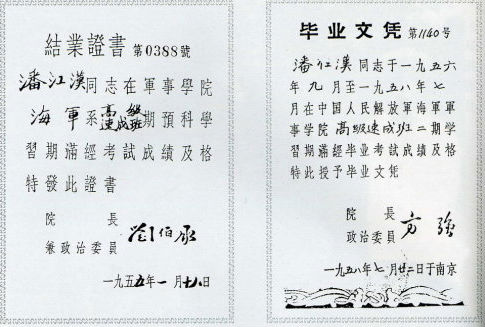 結業證書 第0388號
潘江漢同志在軍事學院
海軍系高級速成班期預科學
習期滿經考試成績及格
特發此證書
院長
兼政治委員 劉伯承
一九五五年一月十八日
毕业文凭 第1140号
潘江漢同志于一九五六
年九月至一九五八年七
月在中国人民解放軍海軍軍
事学院高級速成班二期学
習期滿經毕业考試成績及格
特此授予毕业文凭
院長
政治委員 方强
一九五八年七月廿二日于南京